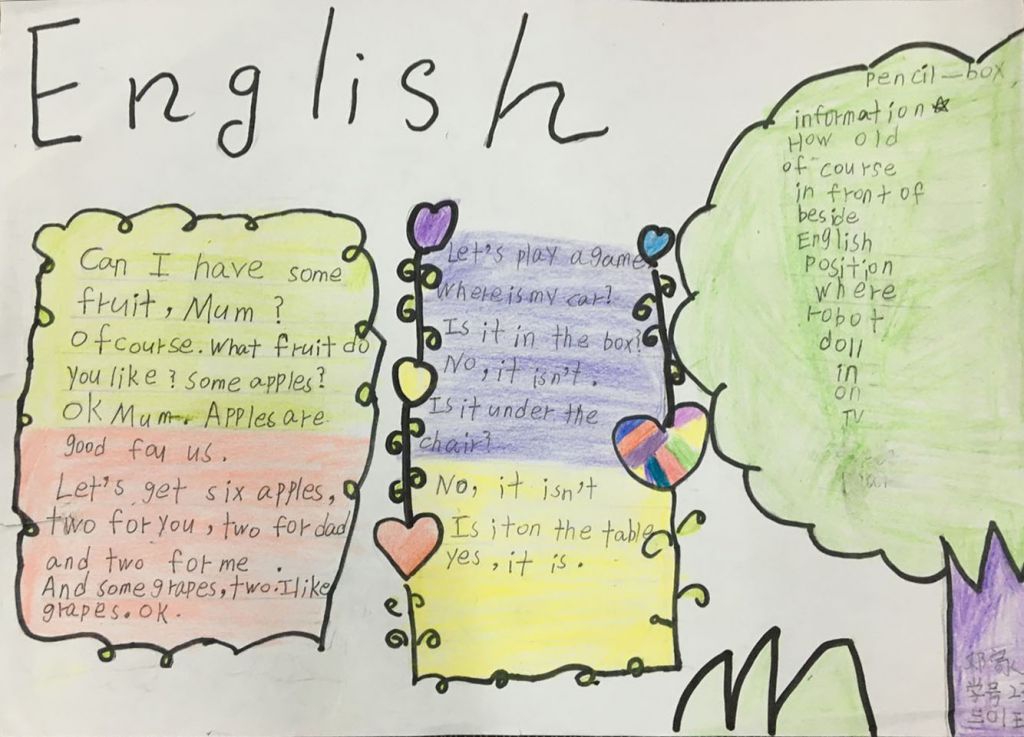 English
Can I have some
fruit, Mum?
Of course. What fruit do
you like? some apples?
OK Mum. Apples are
good fou us.
Let's get six apples,
two for you, two for dad
and two for me.
And some grapes, two. I like
grapes. OK.
Let's play a game
Where is my car?
Is it in the box?
No, it isn't.
Is it under the
chair?
No, it isn't
Is it on the table
yes, it is.
pencil-box
information
How old
of course
in front of
beside
English
position
where
robot
doll
in
on
TV
学号 2